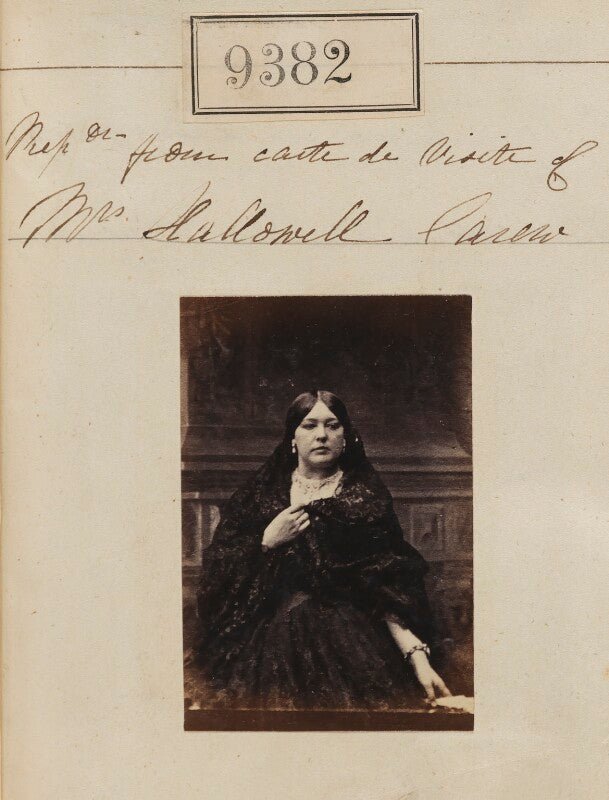 9382
Rep on from carte de Visite of
Mrs. Hallowell Carew